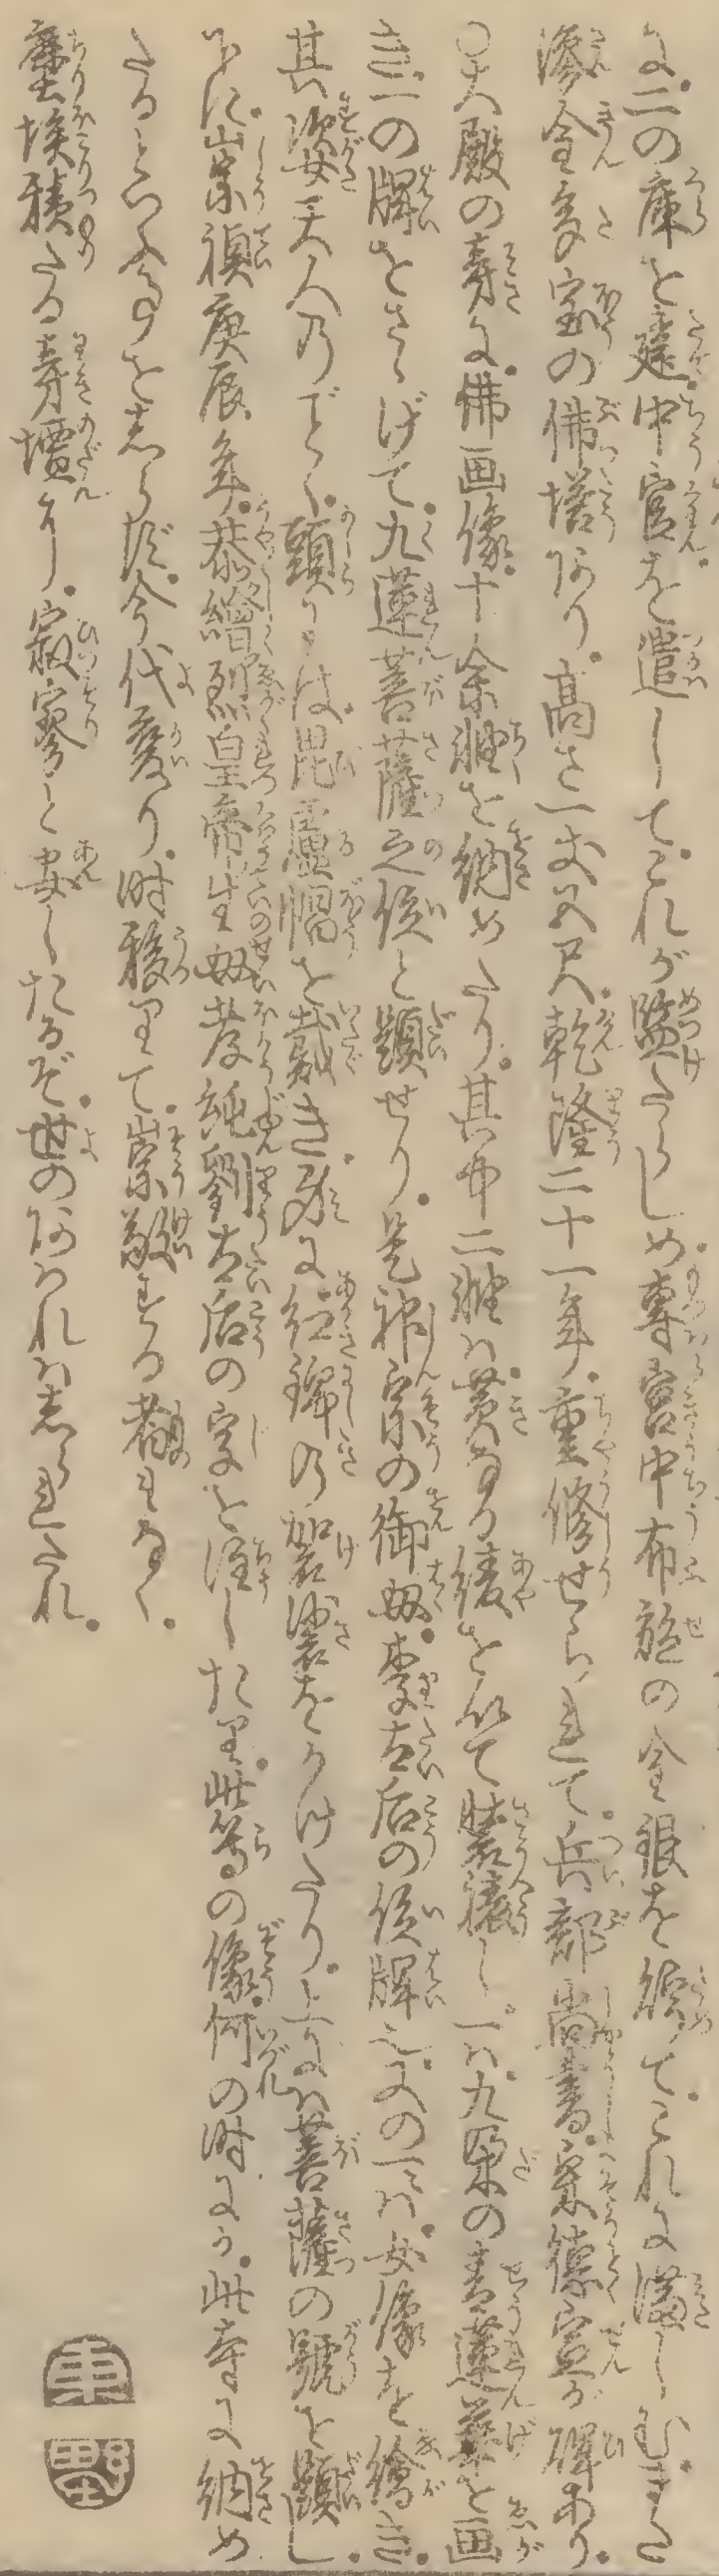 に。二の庫を建。中官を遣してこれが監たらしめ。專宮中布施の金銀を儲て。これに滿しむ。また
滲金多宝の佛塔あり。高さ一丈五尺。乾隆二十一年。重修せられて。兵部尚書。宋德宜が碑あり。
〇大殿の旁に。佛画像。十余軸を納めたり。其中二軸は。黄なる綾を以て裝潢し。一は。九朶の青蓮華を画
き。一の牌をさゝげて。九蓮菩薩之位と題せり。是神宗の御母。李太后の位牌也。又の一は。女像を繪き。
其姿天人のごとく。頭には。毘盧帽を戴き。身に紅錦の袈裟をかけたり。上には菩薩の號を題し。
下に。崇禎庚辰年。恭繪烈皇帝生母孝純劉太后の字を注したり。此等の像。何の時にか。此寺に納め
たるといふ事をしらず。今代變り。時移りて。崇敬する者もなく。
塵埃積たる旁壇に。寂寥と安したるぞ。世のあはれはしられたれ。